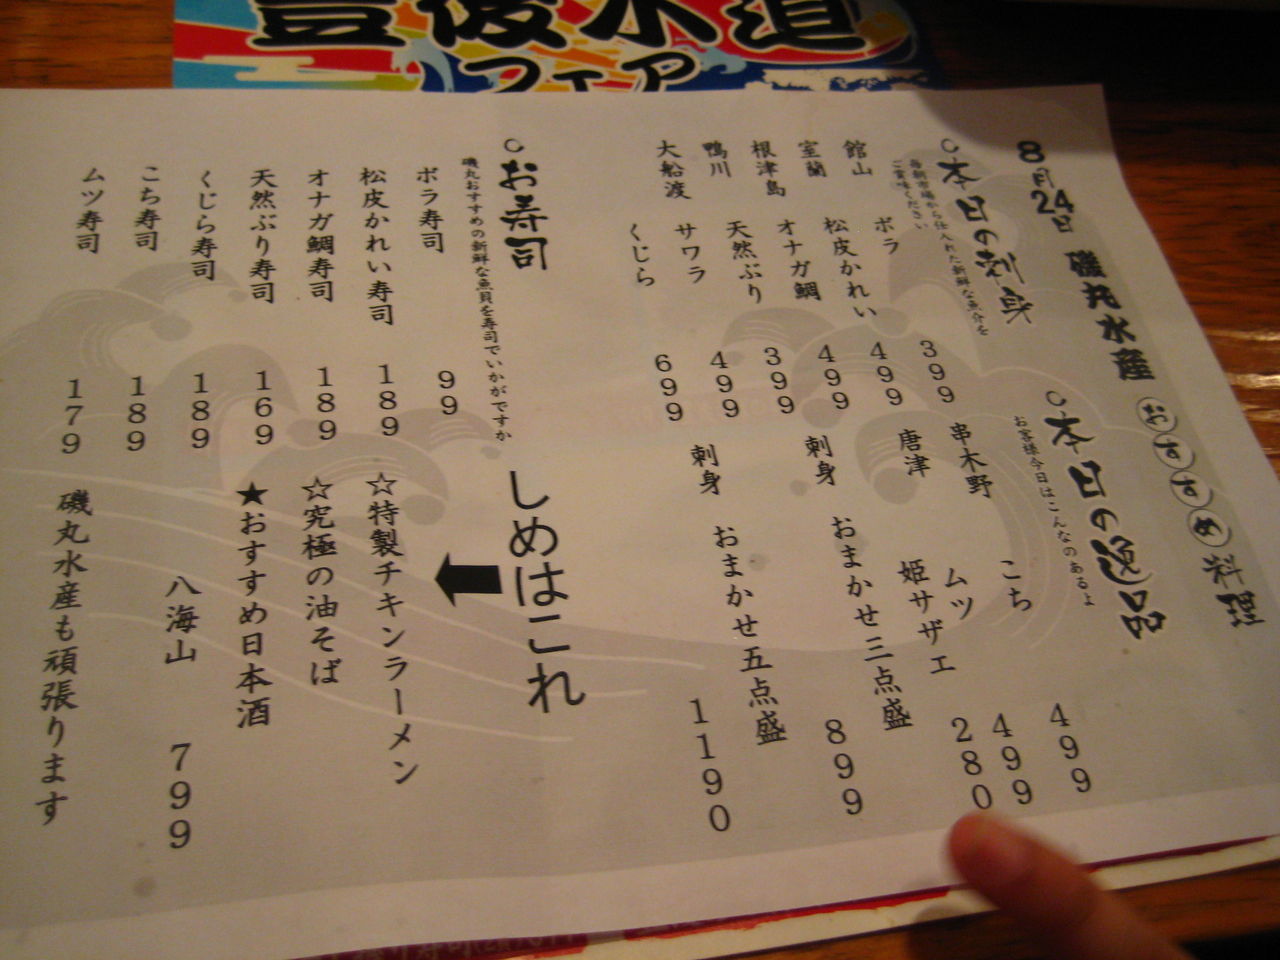 豊後水道
フェア
8月24日 磯丸水産 おすすめ料理
○本日の刺身
毎朝市場から仕入れた新鮮な魚介を
ご賞味ください
館山 ボラ 399
室蘭 松皮かれい 499
根津島 オナガ鯛 499
鴨川 天然ぶり 399
大船渡 サワラ 499
くじら 699
○本日の逸品
お客様今日はこんなのあるよ
串木野 こち 499
ムツ 499
唐津 姫サザエ 280
刺身 おまかせ三点盛 899
刺身 おまかせ五点盛 1190
○お寿司
磯丸おすすめの新鮮な魚貝を寿司でいかがですか
ボラ寿司 99
松皮かれい寿司 189
オナガ鯛寿司 189
天然ぶり寿司 169
くじら寿司 189
こち寿司 189
ムツ寿司 179
しめはこれ
☆特製チキンラーメン
☆究極の油そば
★おすすめ日本酒
八海山 799
磯丸水産も頑張ります